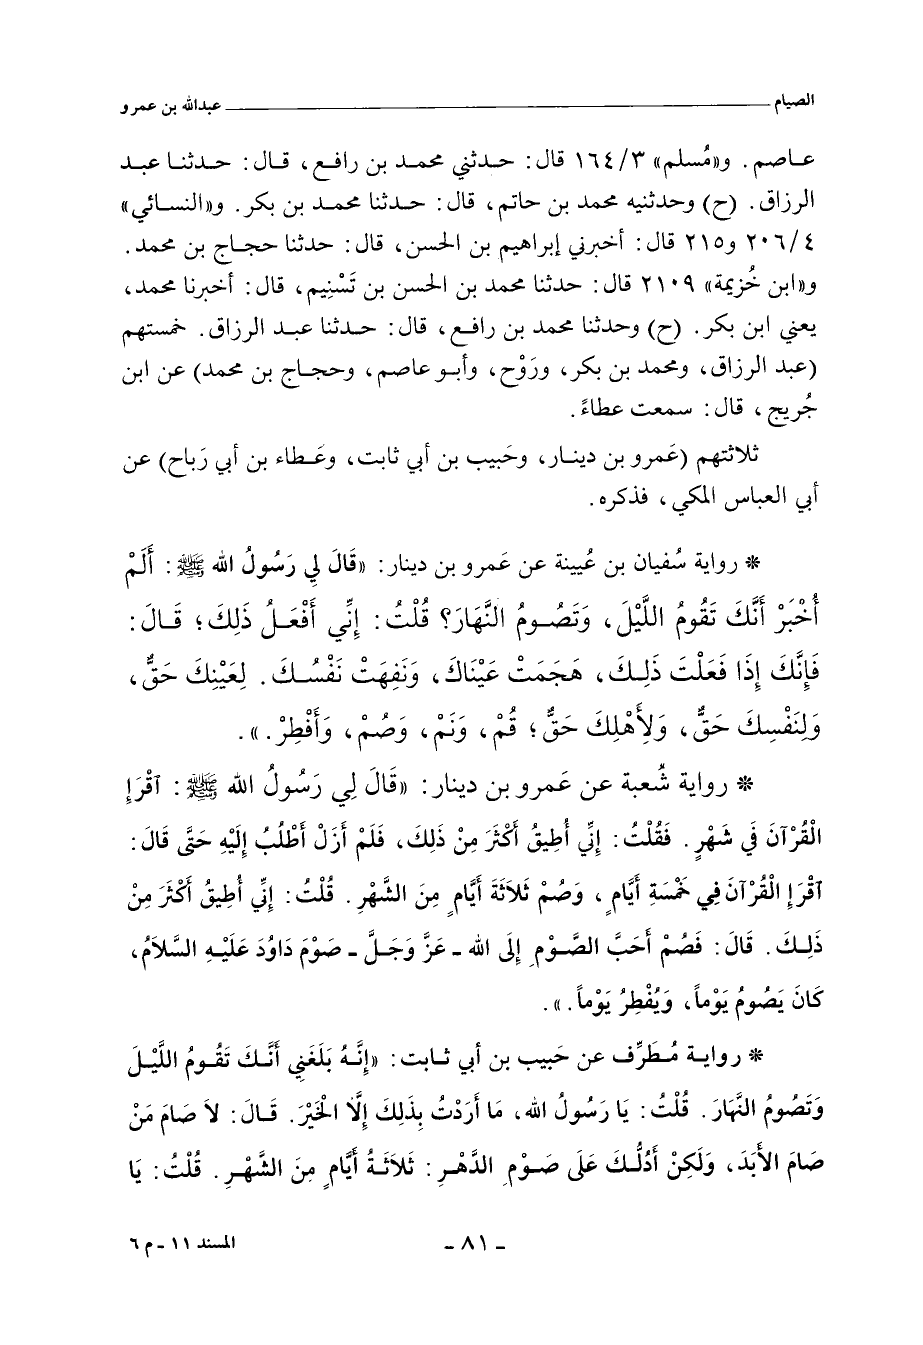 الصيام ــــــــ عبدالله بن عمرو
عاصم. و«مُسلم» ١٦٤/٣ قال: حدثني محمد بن رافع، قال: حدثنا عبد
الرزاق. (ح) وحدثنيه محمد بن حاتم، قال: حدثنا محمد بن بكر. و«النسائي»
٢٠٦/٤ و٢١٥ قال: أخبرني إبراهيم بن الحسن، قال: حدثنا حجاج بن محمد.
و«ابن خُزيمة» ٢١٠٩ قال: حدثنا محمد بن الحسن بن تَسْنِيم، قال: أخبرنا محمد،
يعني ابن بكر. (ح) وحدثنا محمد بن رافع، قال: حدثنا عبد الرزاق. خمستهم
(عبد الرزاق، ومحمد بن بكر، ورَوْح، وأبو عاصم، وحجاج بن محمد) عن ابن
جُريج، قال: سمعت عطاءً.
ثلاثتهم (عَمرو بن دينار، وحَبيب بن أبي ثابت، وعَطاء بن أبي رَباح) عن
أبي العباس المكي، فذكره.
* رواية سُفيان بن عُيينة عن عَمرو بن دينار: «قَالَ لِي رَسُولُ الله ﷺ: أَلَمْ
أُخْبَرْ أَنَّكَ تَقُومُ اللَّيْلَ، وَتَصُومُ النَّهَارَ؟ قُلْتُ: إِنِّي أَفْعَلُ ذَلِكَ؛ قَالَ:
فَإِنَّكَ إِذَا فَعَلْتَ ذَلِكَ، هَجَمَتْ عَيْنَاكَ، وَنَفِهَتْ نَفْسُكَ. لِعَيْنِكَ حَقٌّ،
وَلِنَفْسِكَ حَقٌّ، وَلِأَهْلِكَ حَقٌّ؛ قُمْ، وَنَمْ، وَصُمْ، وَأَفْطِرْ.».
* رواية شُعبة عن عَمرو بن دينار: «قَالَ لِي رَسُولُ الله ﷺ: ٱقْرَإِ
الْقُرْآنَ فِي شَهْرٍ. فَقُلْتُ: إِنِّي أُطِيقُ أَكْثَرَ مِنْ ذَلِكَ، فَلَمْ أَزَلْ أَطْلُبُ إِلَيْهِ حَتَّى قَالَ:
ٱقْرَإِ الْقُرْآنَ فِي خَمْسَةِ أَيَّامٍ، وَصُمْ ثَلاَثَةَ أَيَّامٍ مِنَ الشَّهْرِ. قُلْتُ: إِنِّي أُطِيقُ أَكْثَرَ مِنْ
ذَلِكَ. قَالَ: فَصُمْ أَحَبَّ الصَّوْمِ إِلَى الله ـ عَزَّ وَجَلَّ ـ صَوْمَ دَاوُدَ عَلَيْهِ السَّلاَمُ،
كَانَ يَصُومُ يَوْماً، وَيُفْطِرُ يَوْماً.».
* رواية مُطَرِّف عن حَبيب بن أبي ثابت: «إِنَّهُ بَلَغَنِي أَنَّكَ تَقُومُ اللَّيْلَ
وَتَصُومُ النَّهَارَ. قُلْتُ: يَا رَسُولُ الله، مَا أَرَدْتُ بِذَلِكَ إِلَّا الْخَيْرَ. قَالَ: لاَ صَامَ مَنْ
صَامَ الأَبَدَ، وَلَكِنْ أَدُلُّكَ عَلَى صَوْمِ الدَّهْرِ: ثَلاَثَةُ أَيَّامٍ مِنَ الشَّهْرِ. قُلْتُ: يَا
ـ ٨١ ـ
المسند ١١ ـ م ٦